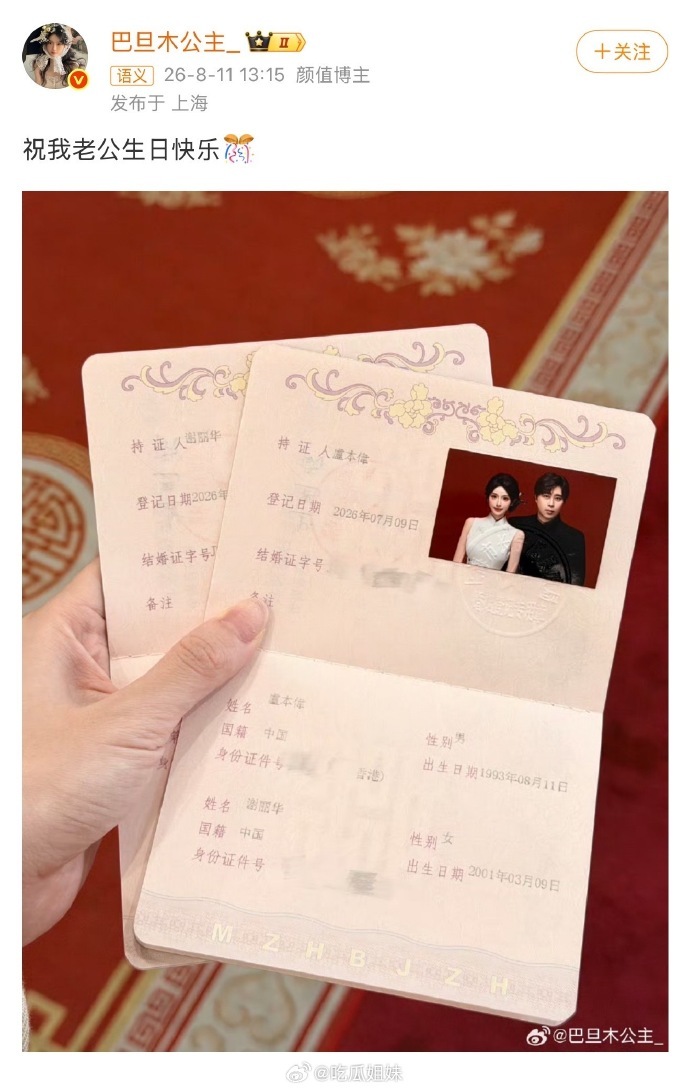 巴旦木公主_ II
+关注
语义 26-8-11 13:15 颜值博主
发布于 上海
祝我老公生日快乐
持 证 人 谢丽华
登记日期 2026年
结婚证字号
备注
持 证 人 童本偉
登记日期 2026年07月09日
结婚证字号
备注
姓名 童本偉
国籍 中国 性别 男
身份证件号 香港) 出生日期 1993年08月11日
姓名 谢丽华
国籍 中国 性别 女
身份证件号 出生日期 2001年03月09日
MZHBJZH
@巴旦木公主_
@吃瓜姐妹